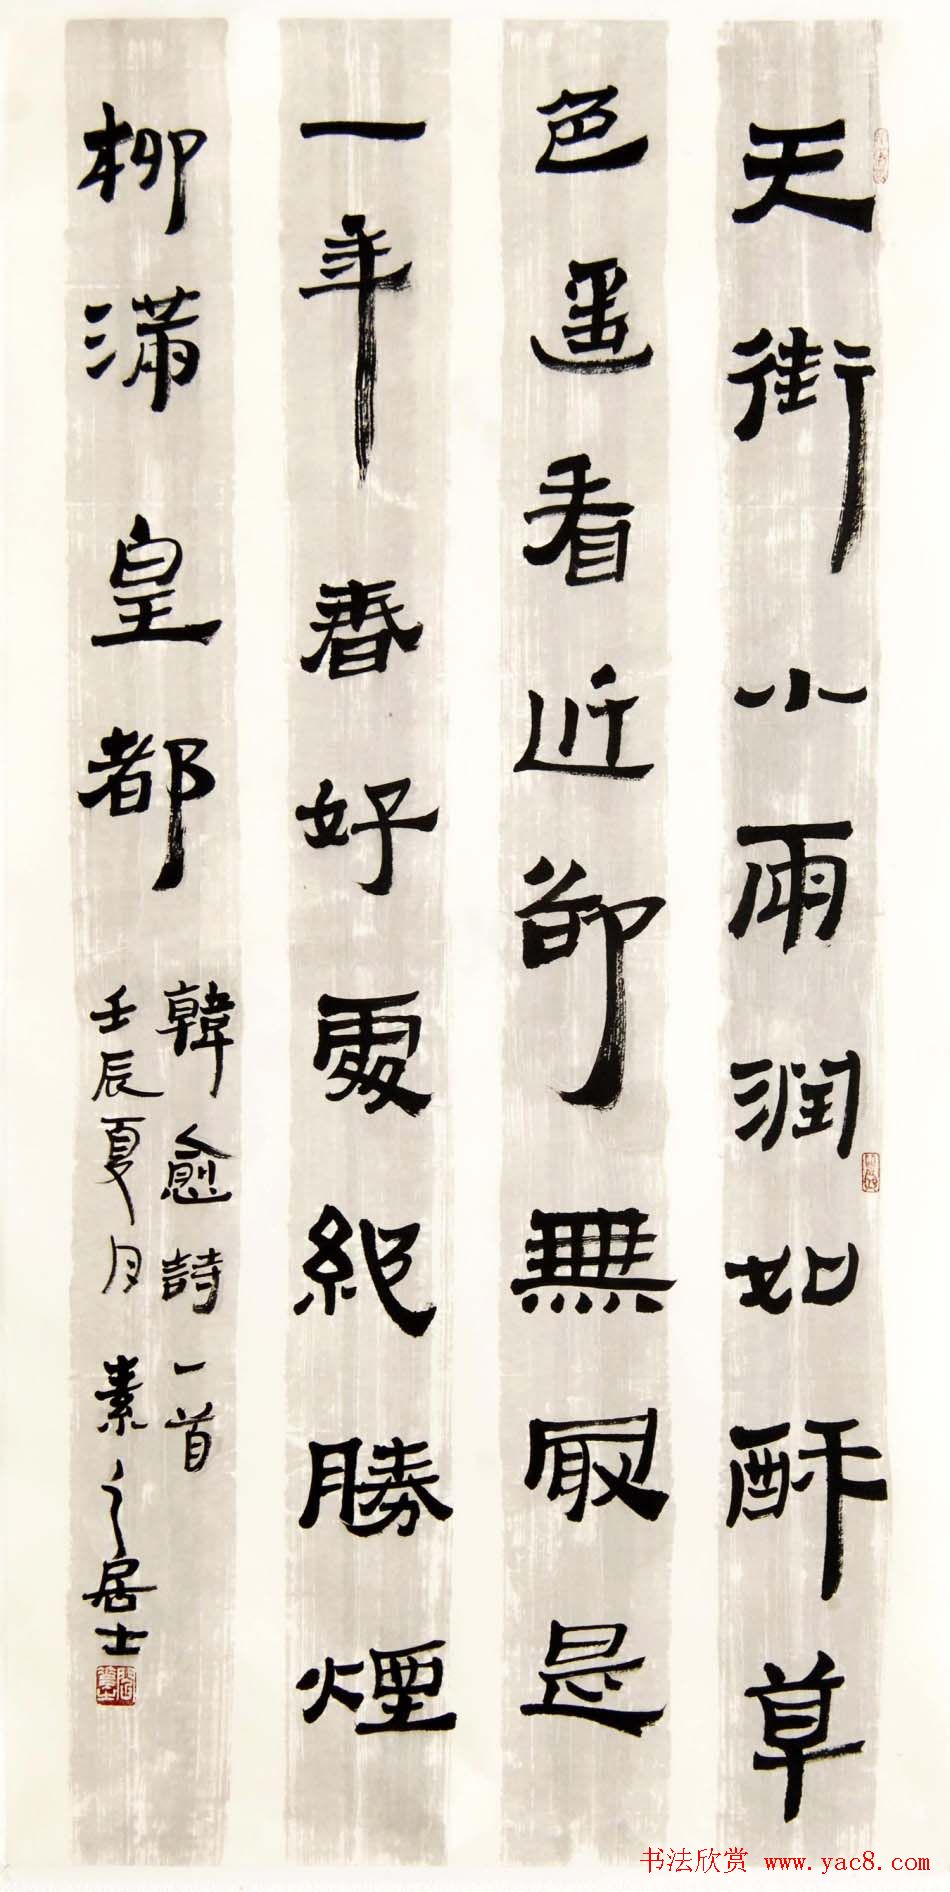 天街小雨润如酥草
色遥看近卻無最是
一年春好處絕勝煙
柳滿皇都
韓愈詩一首
壬辰夏月素之居士
书法欣赏 www.yac8.com